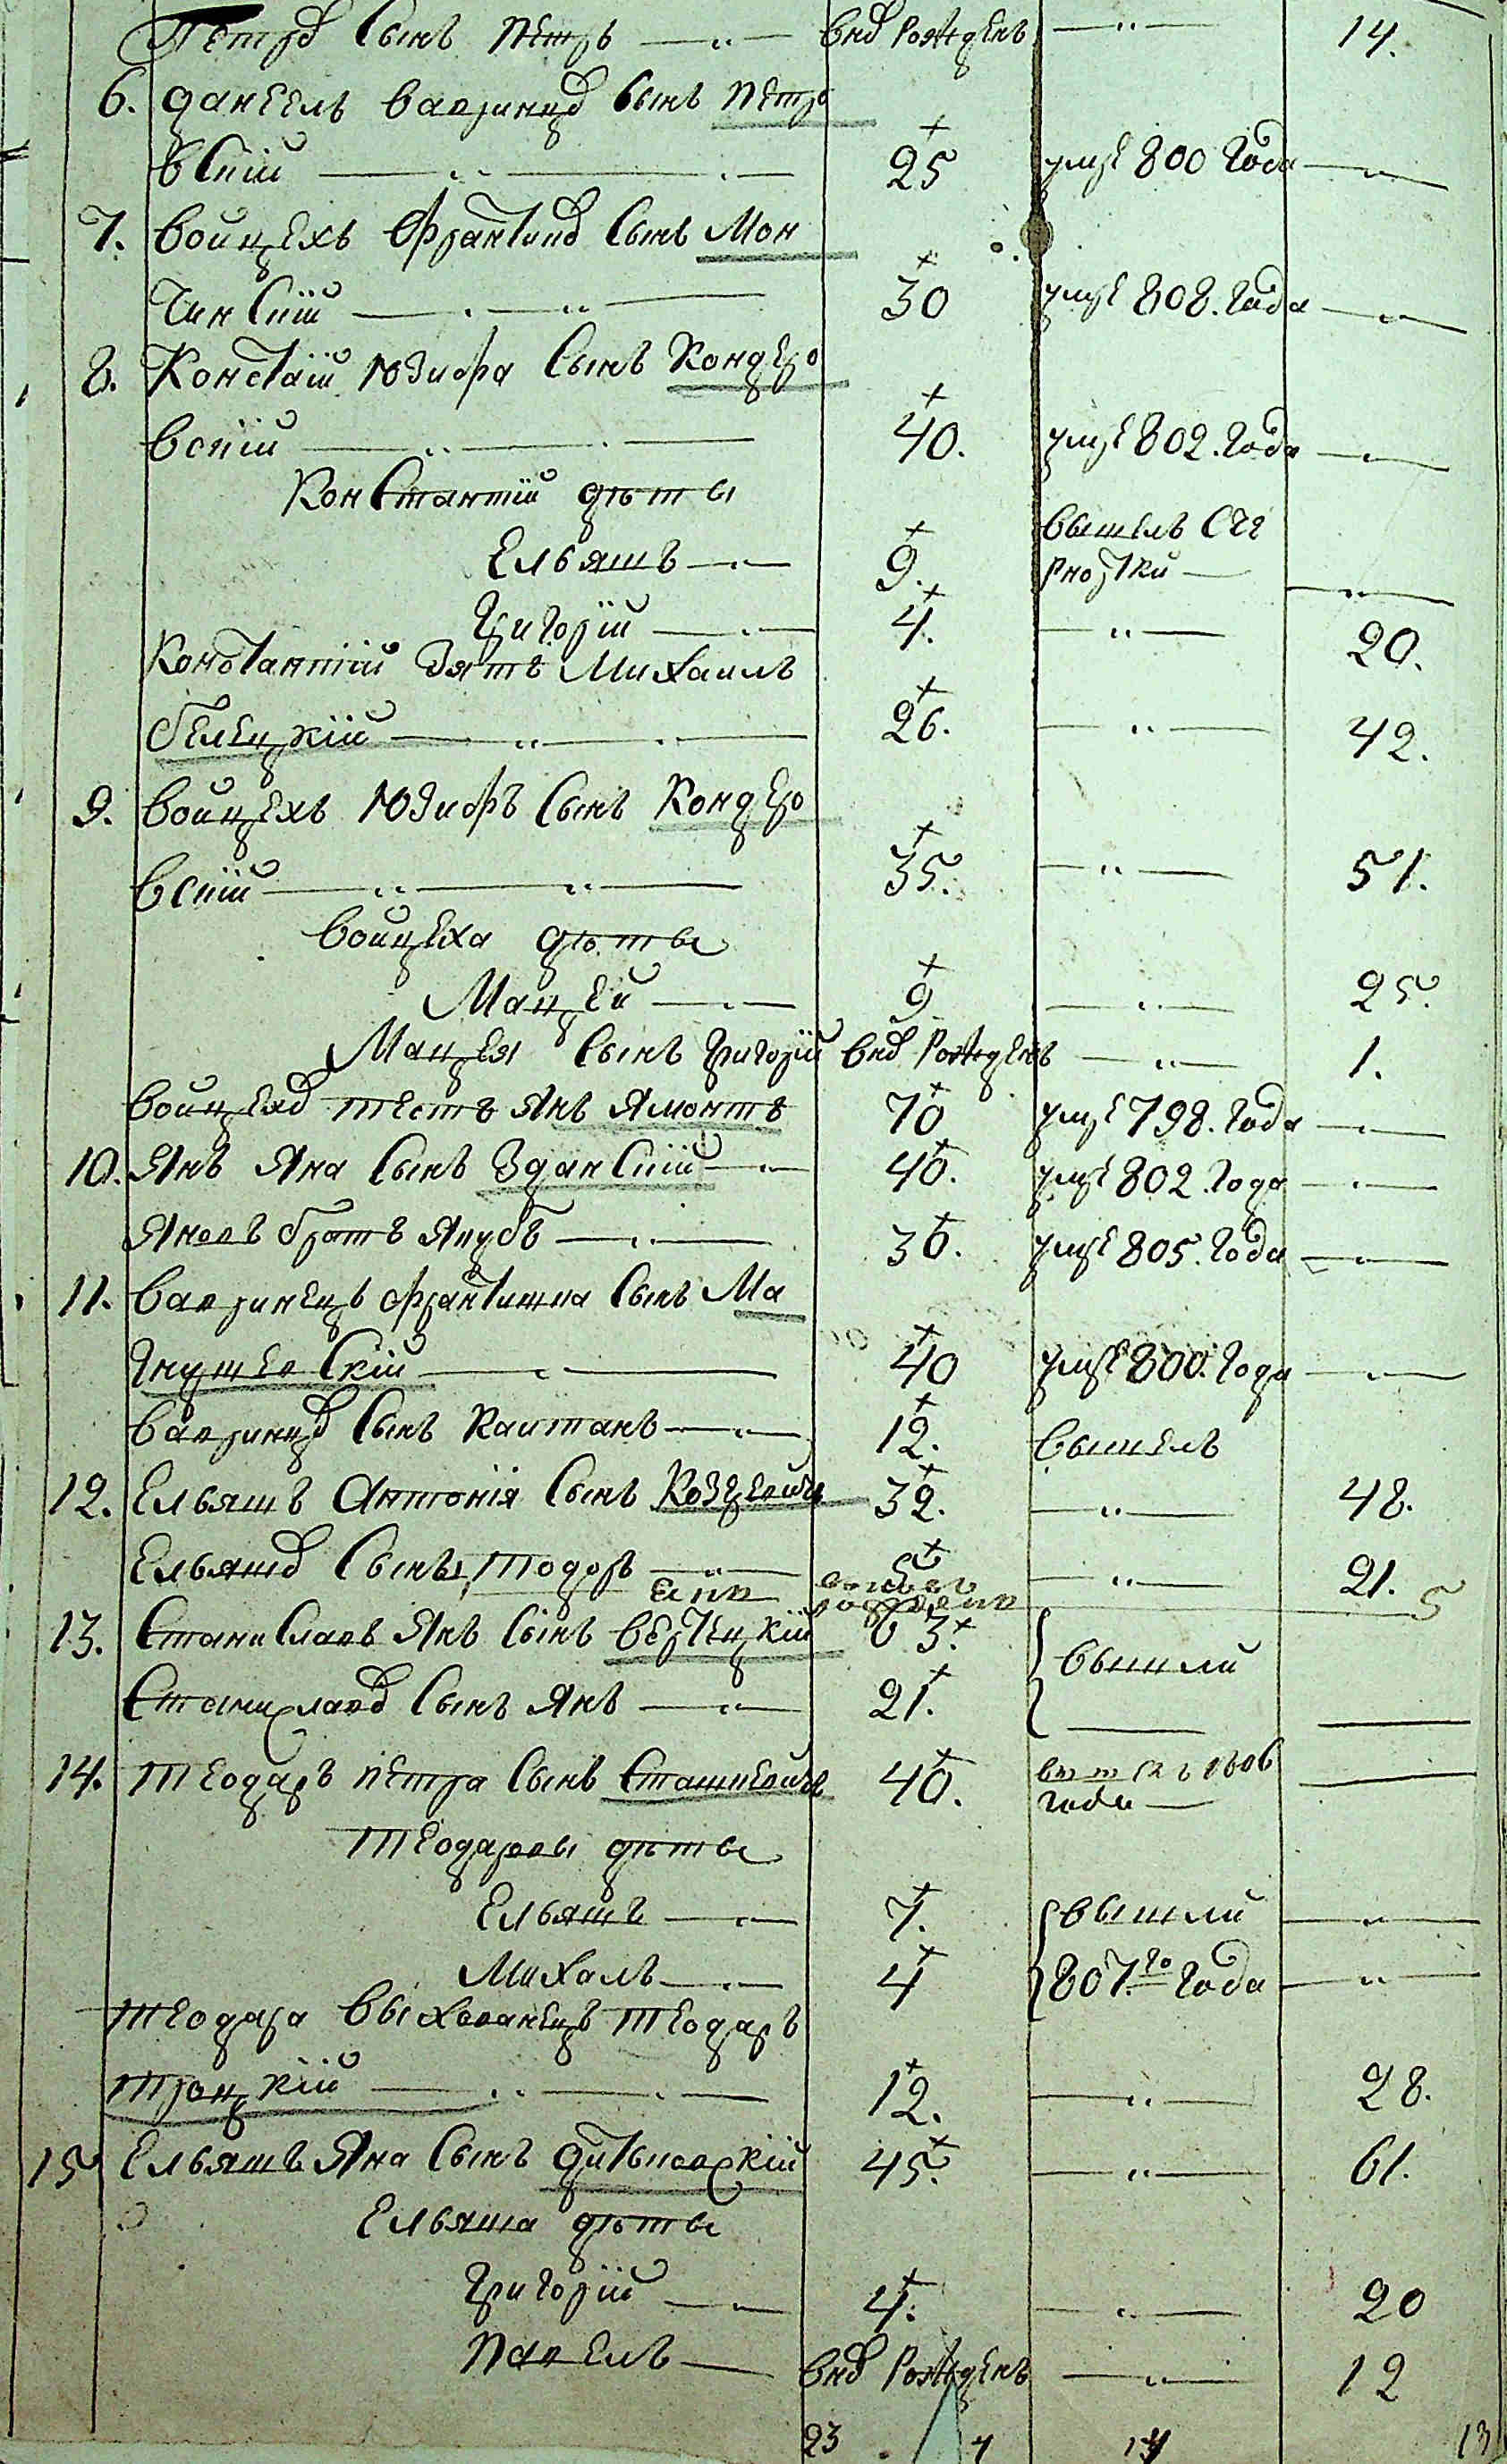 Петра Сынъ Петръ — „ — внов рожденъ — „ — 14.
6. Даніель Вавринца Сынъ Петро
вскій — „ — „ — 25 умре 800 года — „ —
7. Войцехъ Франтишка Сынъ Мон
чинскій — „ — „ — 30 умре 808. года — „ —
8. Константій Юзифа Сынъ Кондро
вскій — „ — „ — 40. умре 802. года — „ —
Константія дѣты
Ельяшъ — „ — 9. вышелъ
— „ —
Григорій — „ — 4. — „ — 20.
Константія Зять Михаилъ
Белецкій — „ — „ — 26. — „ — 42.
9. Войцехъ Юзифъ Сынъ Кондро
вскій — „ — „ — 35. — „ — 51.
Войцеха дѣты
Мацей — „ — 9 — „ — 25.
Мацея Сынъ Григорій внов рожденъ — „ — 1.
Войцеха тесть Янъ Ямонтъ 70 умре 798. года — „ —
10. Янъ Яна Сынъ Зданскій — „ — 40. умре 802. года — „ —
Яновъ братъ Якубъ — „ — 36. умре 805. года — „ —
11. Вавринецъ Франтишка Сынъ Ма
кушевскій — „ — 40 умре 800. года — „ —
Вавринца Сынъ Каитанъ — „ — 12. вышелъ
12. Ельяшъ Антонія Сынъ 32. — „ — 48.
Ельяша Сынъ Тодоръ — „ — 5 — „ — 21.
5
13. Станиславъ Янъ Сынъ 63. вышли
Станислава Сынъ Янъ — „ — 21. —
14. Теодаръ Петра Сынъ Сташкевичъ 40. 1806
года — —
Теодаровы дѣты
Ельяшъ — „ — 7. вышли — „ —
Михалъ — „ — 4 807.го года — „ —
Теодара Выхованецъ Теодаръ
Троцкій — „ — „ — 12. — „ — 28.
15 Ельяшъ Яна Сынъ 45. — „ — 61.
Ельяша дѣты
Григорій — „ — 4. — „ — 20
Павелъ — внов рожденъ — „ — 12
23 4 14 13